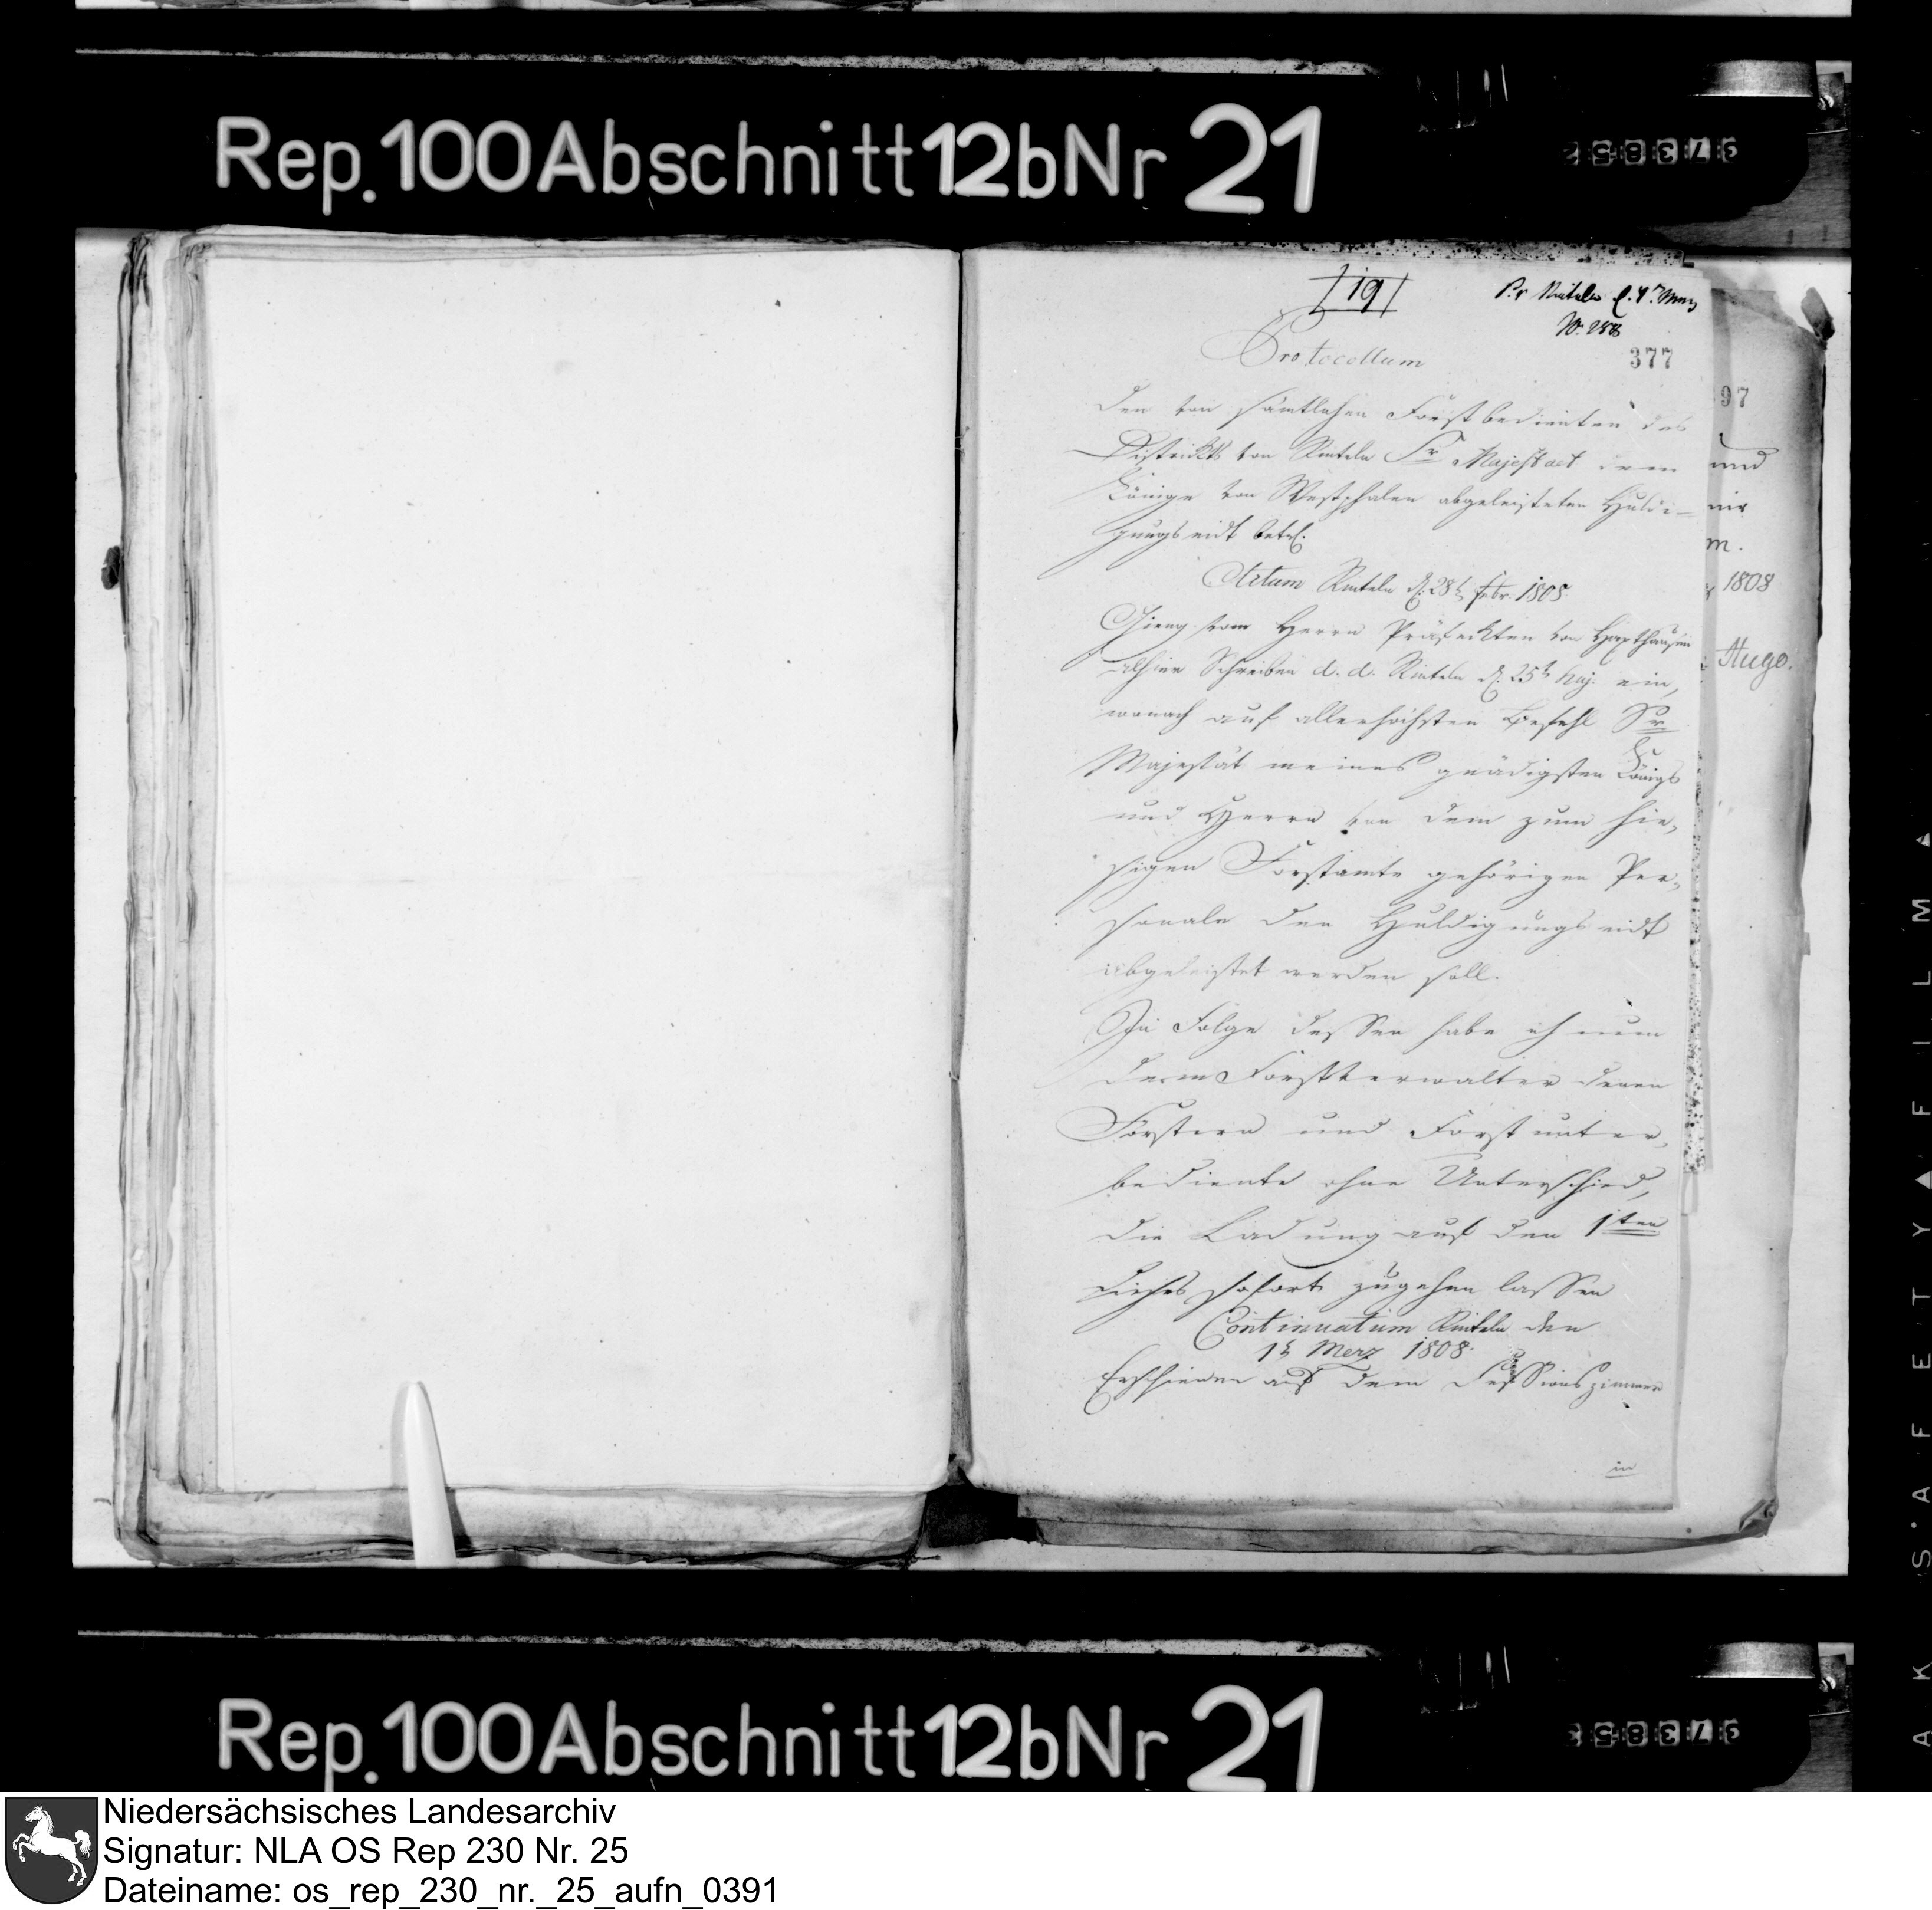 Rep. 100 Abschnitt 12b Nr 21
19
P. r Rinteln d. 4t. Merz
No. 258
377
Protocollum
den von sämtlichen Forstbedienten des
Districkts von Rinteln Sr Majestaet dem
Könige von Westphalen abgeleisteten Huldi-
gungs eidt betrf.
Actum Rinteln d. 28t Febr. 1808
Gieng vom Herrn Präfeckten von Haxthausen
Schreiben d. d. Rinteln d. 25t huj. ein,
wonach auf allerhöchsten Befehl Sr
Majestät meines gnädigsten Königs
und Herrn von dem zum hie,
sigen Forstamte gehörigen Per,
sonale der Huldigungs eidt
abgeleistet werden soll.
In Folge dessen habe ich nun
denen Forstverwalter denen
Förstern und Forst unter,
bediente ohne Unterschied,
die Ladung auf den 1ten
dieses sofort zugehen lassen
Continuatum Rinteln den
1t Merz 1808.
Erschienen auf dem Sessionszimmer
in
97
und
mir
m.
1808
Hugo.
SAFETY FILM
Rep. 100 Abschnitt 12b Nr 21
Niedersächsisches Landesarchiv
Signatur: NLA OS Rep 230 Nr. 25
Dateiname: os_rep_230_nr._25_aufn_0391